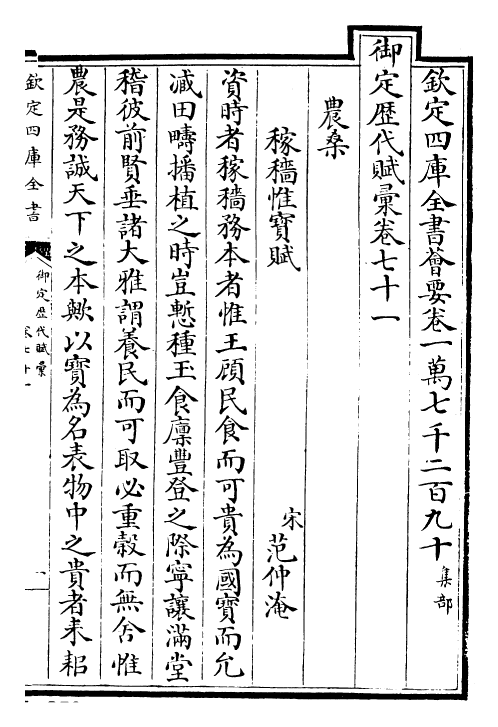 欽定四庫全書薈要卷一萬七千二百九十 集部
御定歴代賦彙卷七十一
農桑
稼穡惟寶賦 宋 范仲淹
資時者稼穡務本者惟王顧民食而可貴為國寶而允
減田疇播植之時豈慙種玉食廪豐登之際寧讓滿堂
稽彼前賢垂諸大雅謂養民而可取必重穀而無舍惟
農是務誠天下之本歟以寳為名表物中之貴者耒耜
欽定四庫全書
御定歴代賦彙
卷七十一
一